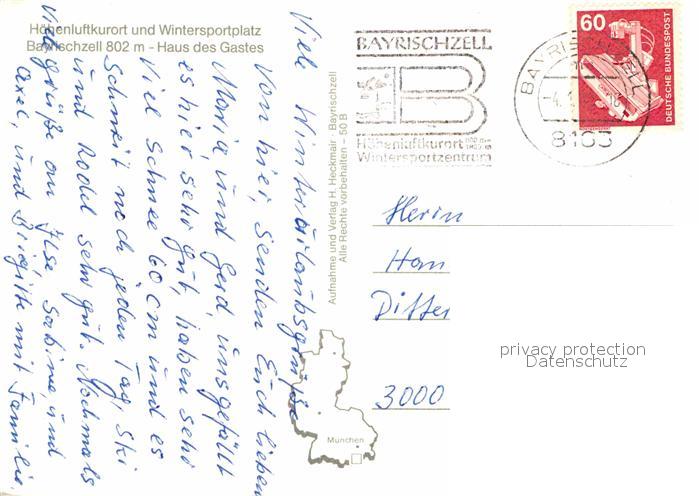 Höhenluftkurort und Wintersportplatz
Bayrischzell 802 m - Haus des Gastes
Viele Winterurlaubsgrüße
von hier, senden Euch lieben
Maria und Gerd, uns gefällt
es hier sehr gut, haben sehr
viel Schnee 60 cm und es
schneit noch jeden Tag, Ski
und Rodel sehr gut. Nochmals
viele Grüße an Ilse Sabine, und
Axel, und Birgitte mit Familie.
Aufnahme und Verlag H. Heckmair · Bayrischzell
Alle Rechte vorbehalten - 50 B
München
BAYRISCHZELL
B
Höhenluftkurort
Wintersportzentrum
BAYRISCHZELL
8163
60
DEUTSCHE BUNDESPOST
Herrn
Ditter
3000
privacy protection
Datenschutz